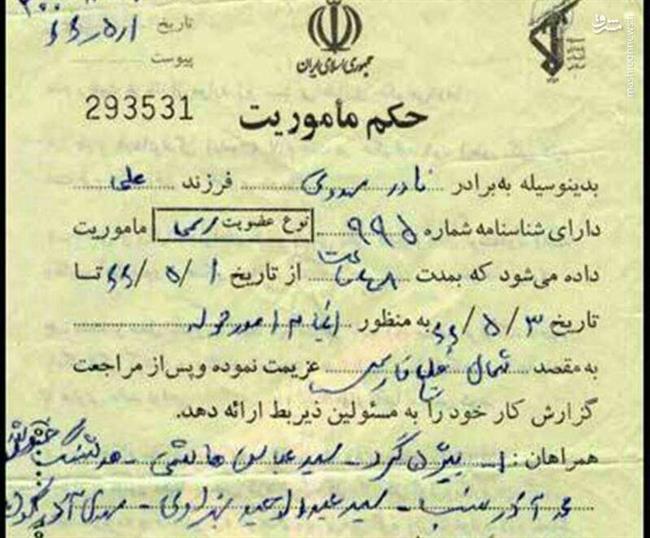 تاریخ ۱ر۵ر۶۶
پیوست
جمهوری اسلامی ایران
293531
حکم مأموریت
بدینوسیله به برادر نادر مهدوی فرزند علی
دارای شناسنامه شماره ۹۹۵ نوع عضویت رسمی ماموریت
داده می‌شود که بمدت ۴۸ ساعت از تاریخ ۱/۵/۶۶ تا
تاریخ ۳/۵/۶۶ به منظور انجام امور محوله
به مقصد شمال خلیج فارس عزیمت نموده و پس از مراجعت
گزارش کار خود را به مسئولین ذیربط ارائه دهد.
همراهان: ۱- بیژن گرد - سید عباس هاشمی -
- سید عبدالاحد - مهدی
مشرق
mashreghnews.ir